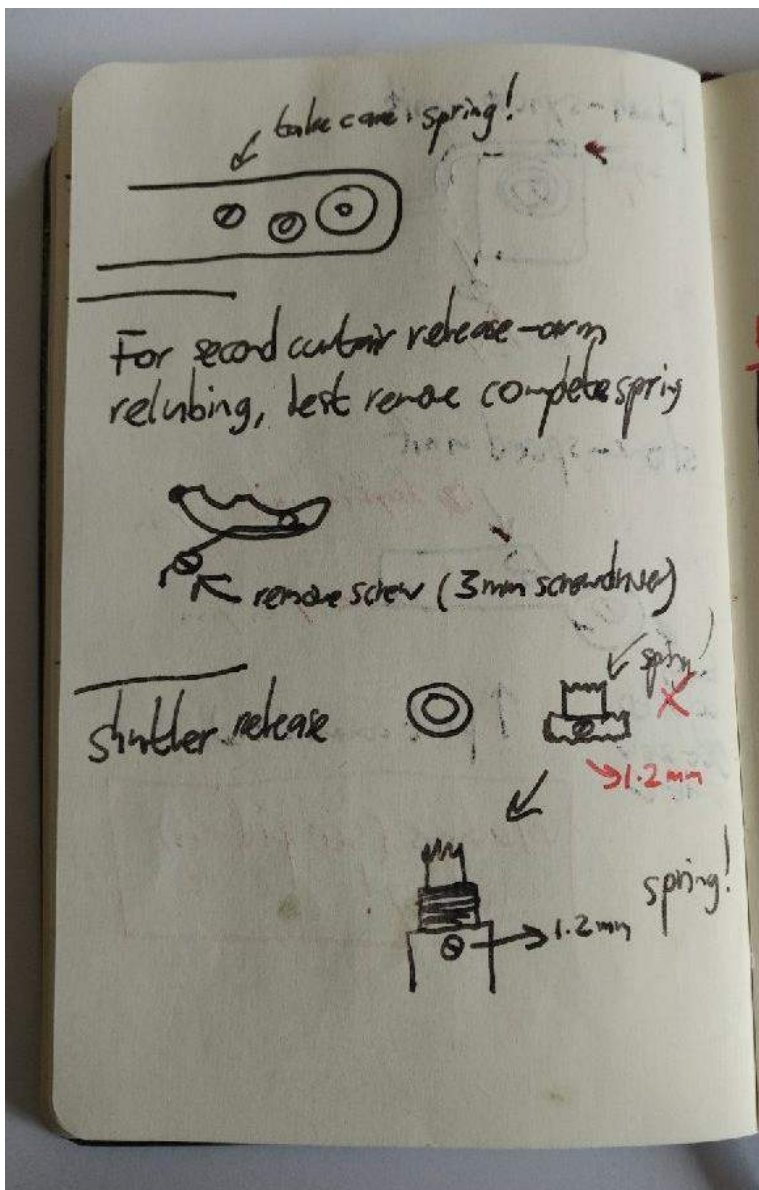 take care, spring!
For second curtain release-arm
relubing, best remove complete spring
remove screw (3mm screwdriver)
spring
Shutter release
1.2mm
spring!
1.2mm